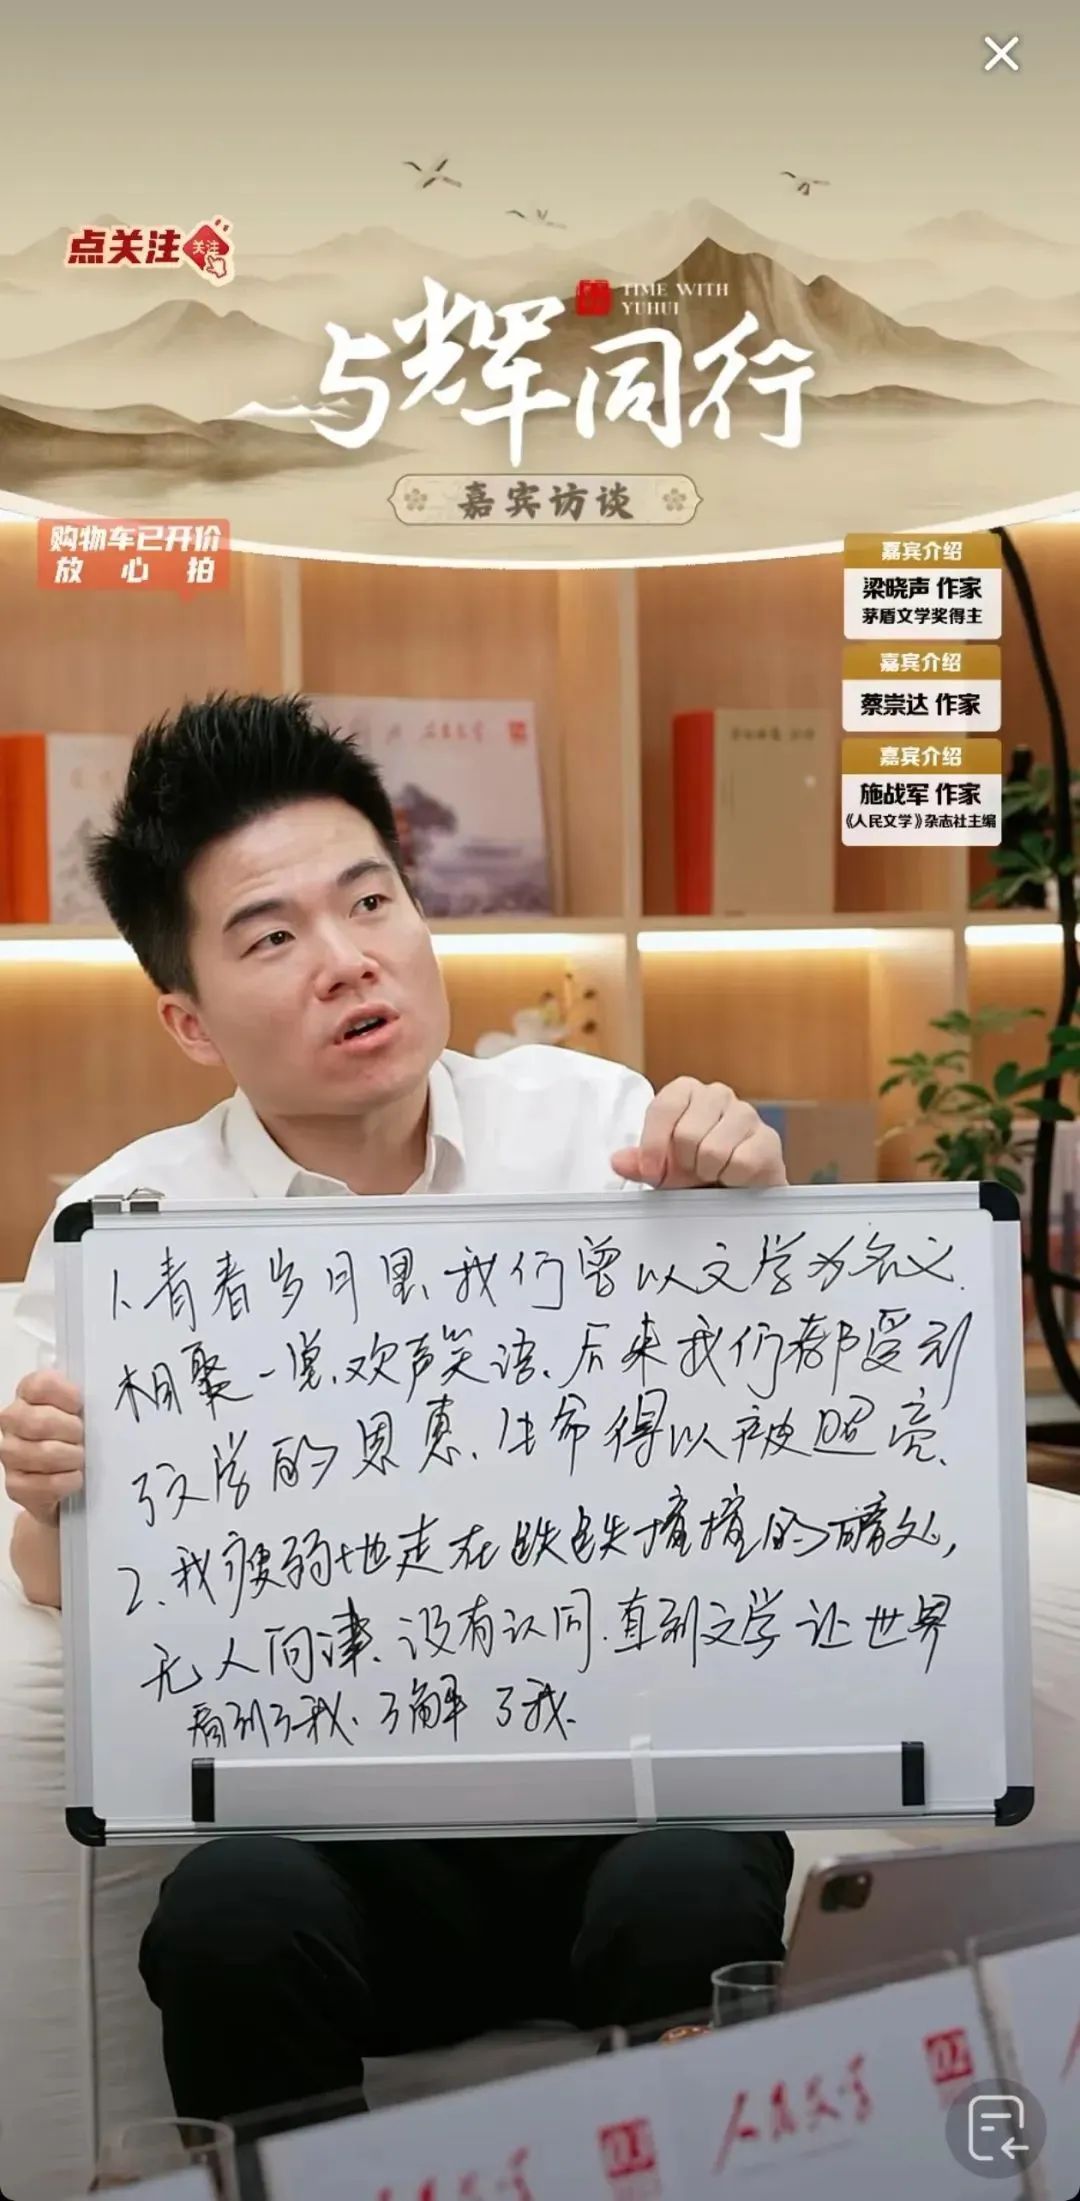 点关注
关注
TIME WITH
YUHUI
与辉同行
嘉宾访谈
购物车已开价
放心拍
嘉宾介绍
梁晓声 作家
茅盾文学奖得主
嘉宾介绍
蔡崇达 作家
嘉宾介绍
施战军 作家
《人民文学》杂志社主编
人民文学
1.青春岁月里,我们曾以文学为名义.
相聚一堂.欢声笑语.后来我们都受到
了文学的恩惠.生命得以被照亮.
2.我疲弱地走在跌跌撞撞的暗处,
无人问津.没有认同.直到文学让世界
看到了我.了解了我.
人民文学